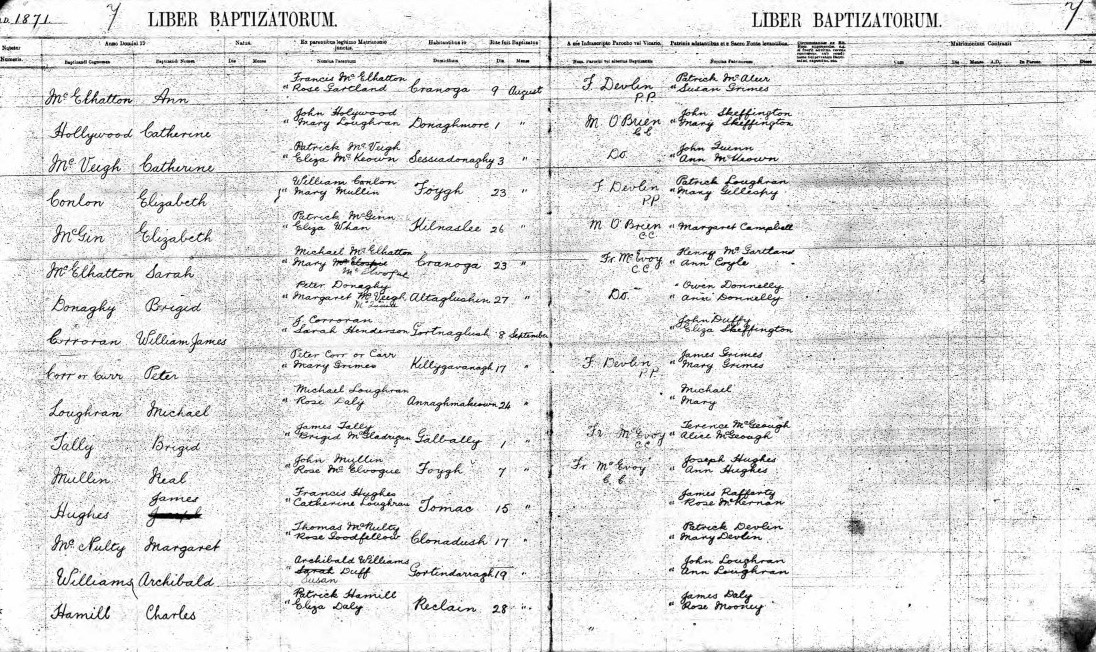 1871
7
LIBER BAPTIZATORUM.
LIBER BAPTIZATORUM.
7
Anno Domini
Natus.
Ex parentibus legitimo Matrimonio junctis.
Habitantibus in
Rite fuit Baptizatus
A me Infrascripto Parocho vel Vicario.
Patrinis adstantibus et e Sacro Fonte levantibus.
Matrimonium Contraxit
Baptizandi Cognomen
Baptizandi Nomen
Die
Mense
Nomina Parentum
Domicilium
Die
Mense
Nomina Patrinorum
Cum
Die
Mense
A.D.
In Paroec.
Dioec
Francis McElhatton
Patrick McAleer
McElhatton Ann " Rose Gartland Cranoga 9 August F Devlin P.P. " Susan Grimes
John Holywood
John Skeffington
Hollywood Catherine " Mary Loughran Donaghmore 1 " M O'Brien CC " Mary Skeffington
Patrick McVeigh
John Quinn
McVeigh Catherine " Eliza McKeown Sessiadonaghy 3 " Do. " Ann McKeown
William Conlon
Patrick Loughran
Conlon Elizabeth " Mary Mullin Foygh 23 " F Devlin P.P. " Mary Gillespy
Patrick McGinn
McGin Elizabeth " Eliza Whan Kilnaslee 26 " M O'Brien C.C. " Margaret Campbell
Michael McElhatton
Henry McGartland
McElhatton Sarah " Mary McElvogue Cranoga 23 " Fr McEvoy C.C. " Ann Coyle
Peter Donaghy
" Owen Donnelly
Donaghy Brigid " Margaret McVeigh Altaglushin 27 " Do. " Ann Donnelly
J Corroran
John Duffy
Corroran William James " Sarah Henderson Gortnaglush 8 September " Eliza Skeffington
Peter Corr or Carr
James Grimes
Corr or Carr Peter " Mary Grimes Killygavanagh 17 " F Devlin P.P. " Mary Grimes
Michael Loughran
Michael
Loughran Michael " Rose Daly Annaghmakeown 24 " " Mary
James Tally
Terence McGeough
Tally Brigid " Brigid McGladrigan Galbally 1 " Fr McEvoy C.C. " Alice McGeough
John Mullin
Joseph Hughes
Mullin Neal Rose McElvogue Foygh 7 " Fr McEvoy C.C. " Ann Hughes
Francis Hughes
James Rafferty
Hughes James " Catherine Loughran Tomac 15 " " Rose McKernan
Thomas McNulty
Patrick Devlin
McNulty Margaret " Rose Goodfellow Clonadush 17 " " Mary Devlin
Archibald Williams
John Loughran
Williams Archibald " Sarah Duff Gortindarragh 19 " " Ann Loughran
Susan
Patrick Hamill
James Daly
Hamill Charles " Eliza Daly Reclain 28 " " Rose Mooney